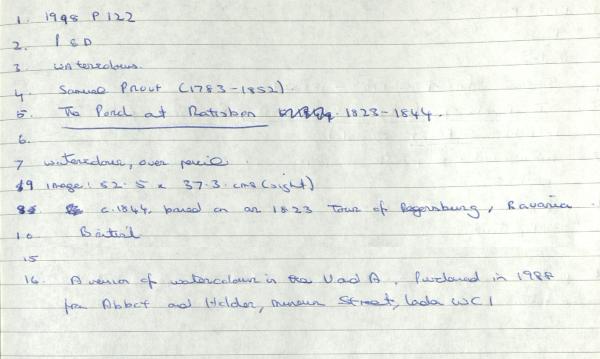 1. 1998 P 122
2. P & D
3. watercolours.
4. Samuel Prout (1783-1852).
5. The Porch at Ratisbon 1823-1844.
6.
7 watercolour, over pencil.
9 image: 52.5 x 37.3. cms (sight)
c.1844, based on an 1823 Tour of Regensburg, Bavaria.
10 British
15
16. A version of watercolour in the V and A. Purchased in 1988
from Abbot and Holder, museum Street, London WC1